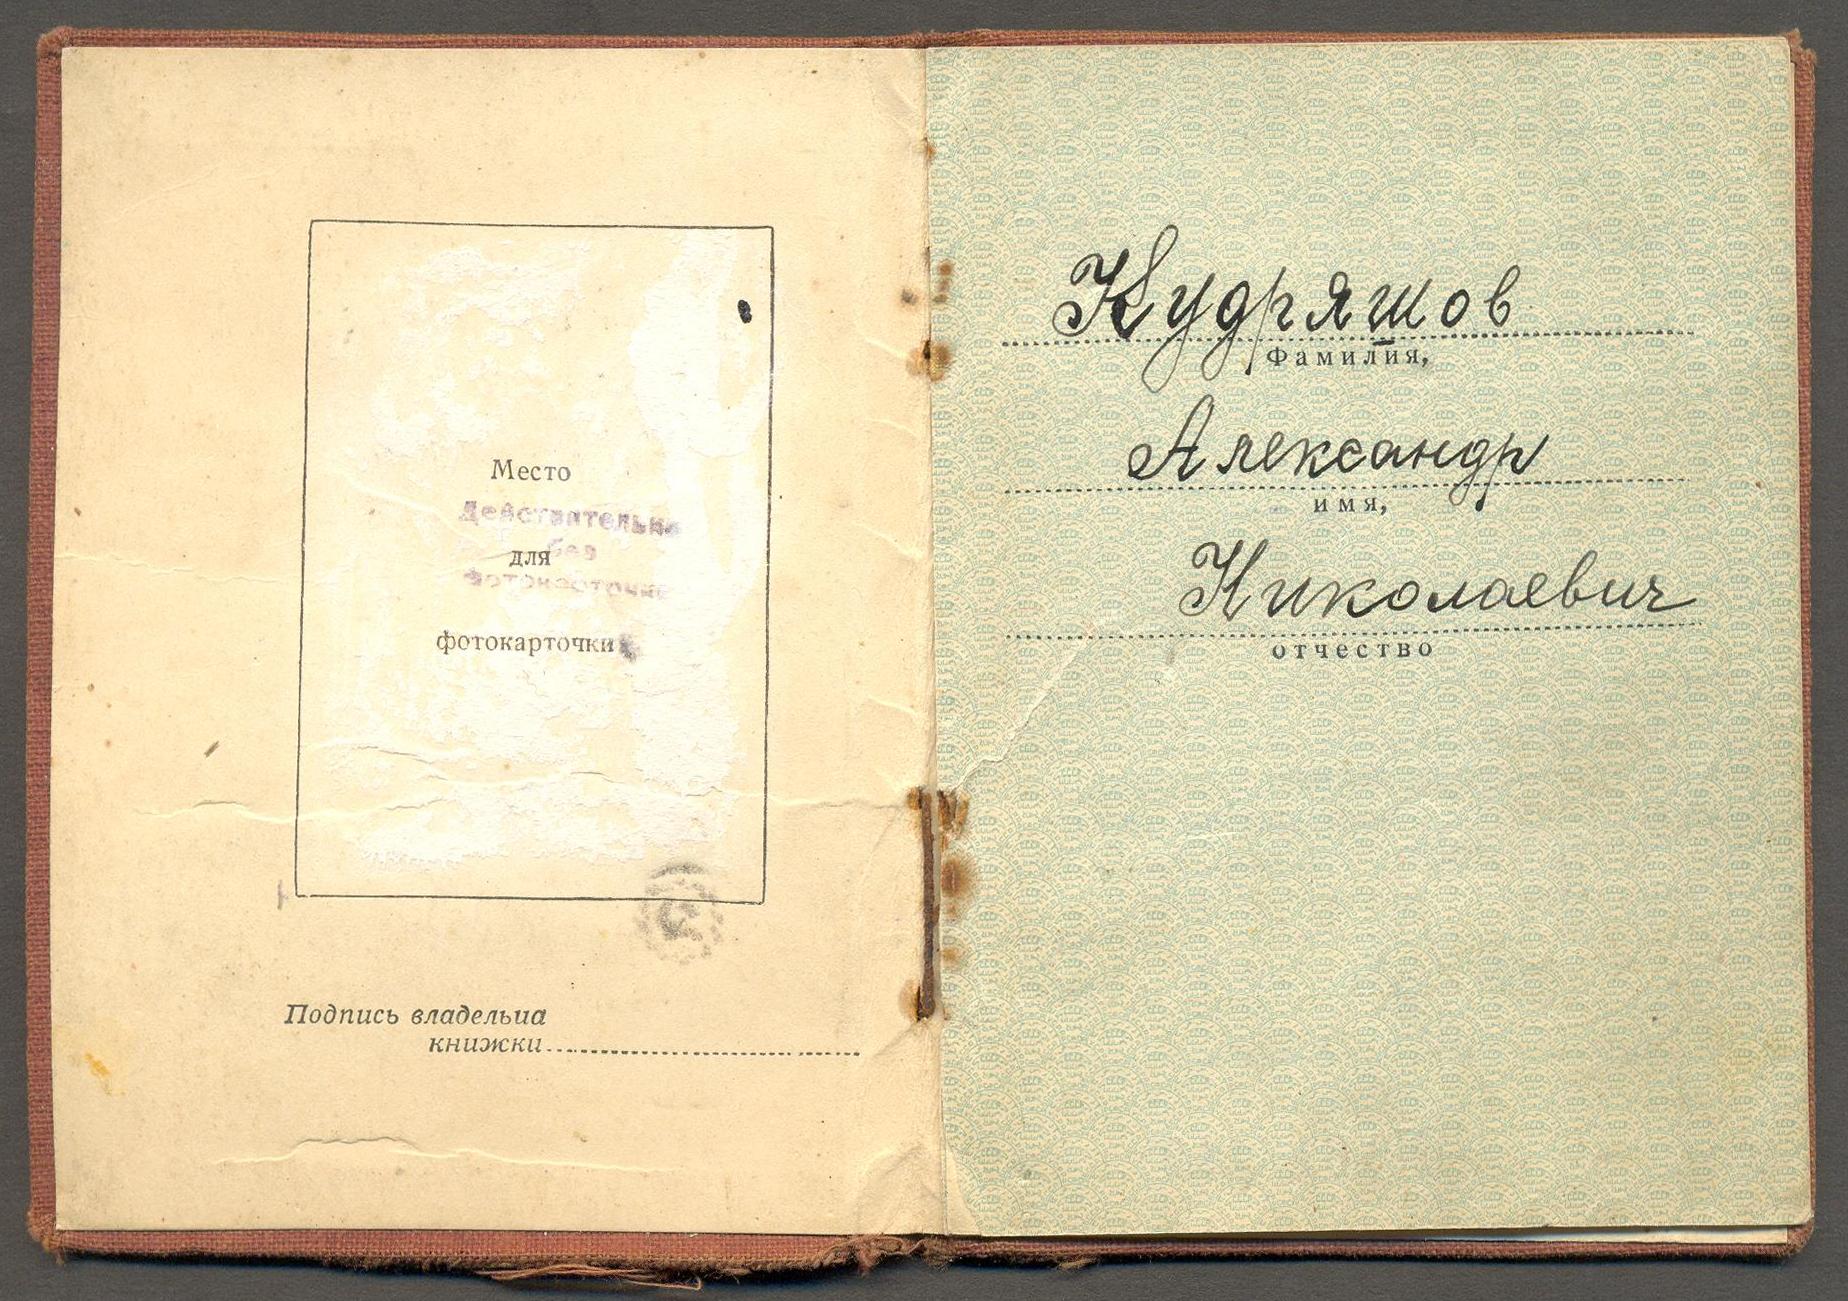 Место
Действительно
без
для
фотокарточки
фотокарточки
Подпись владельца
книжки
Кудряшов
Фамилия,
Александр
имя,
Николаевич
отчество